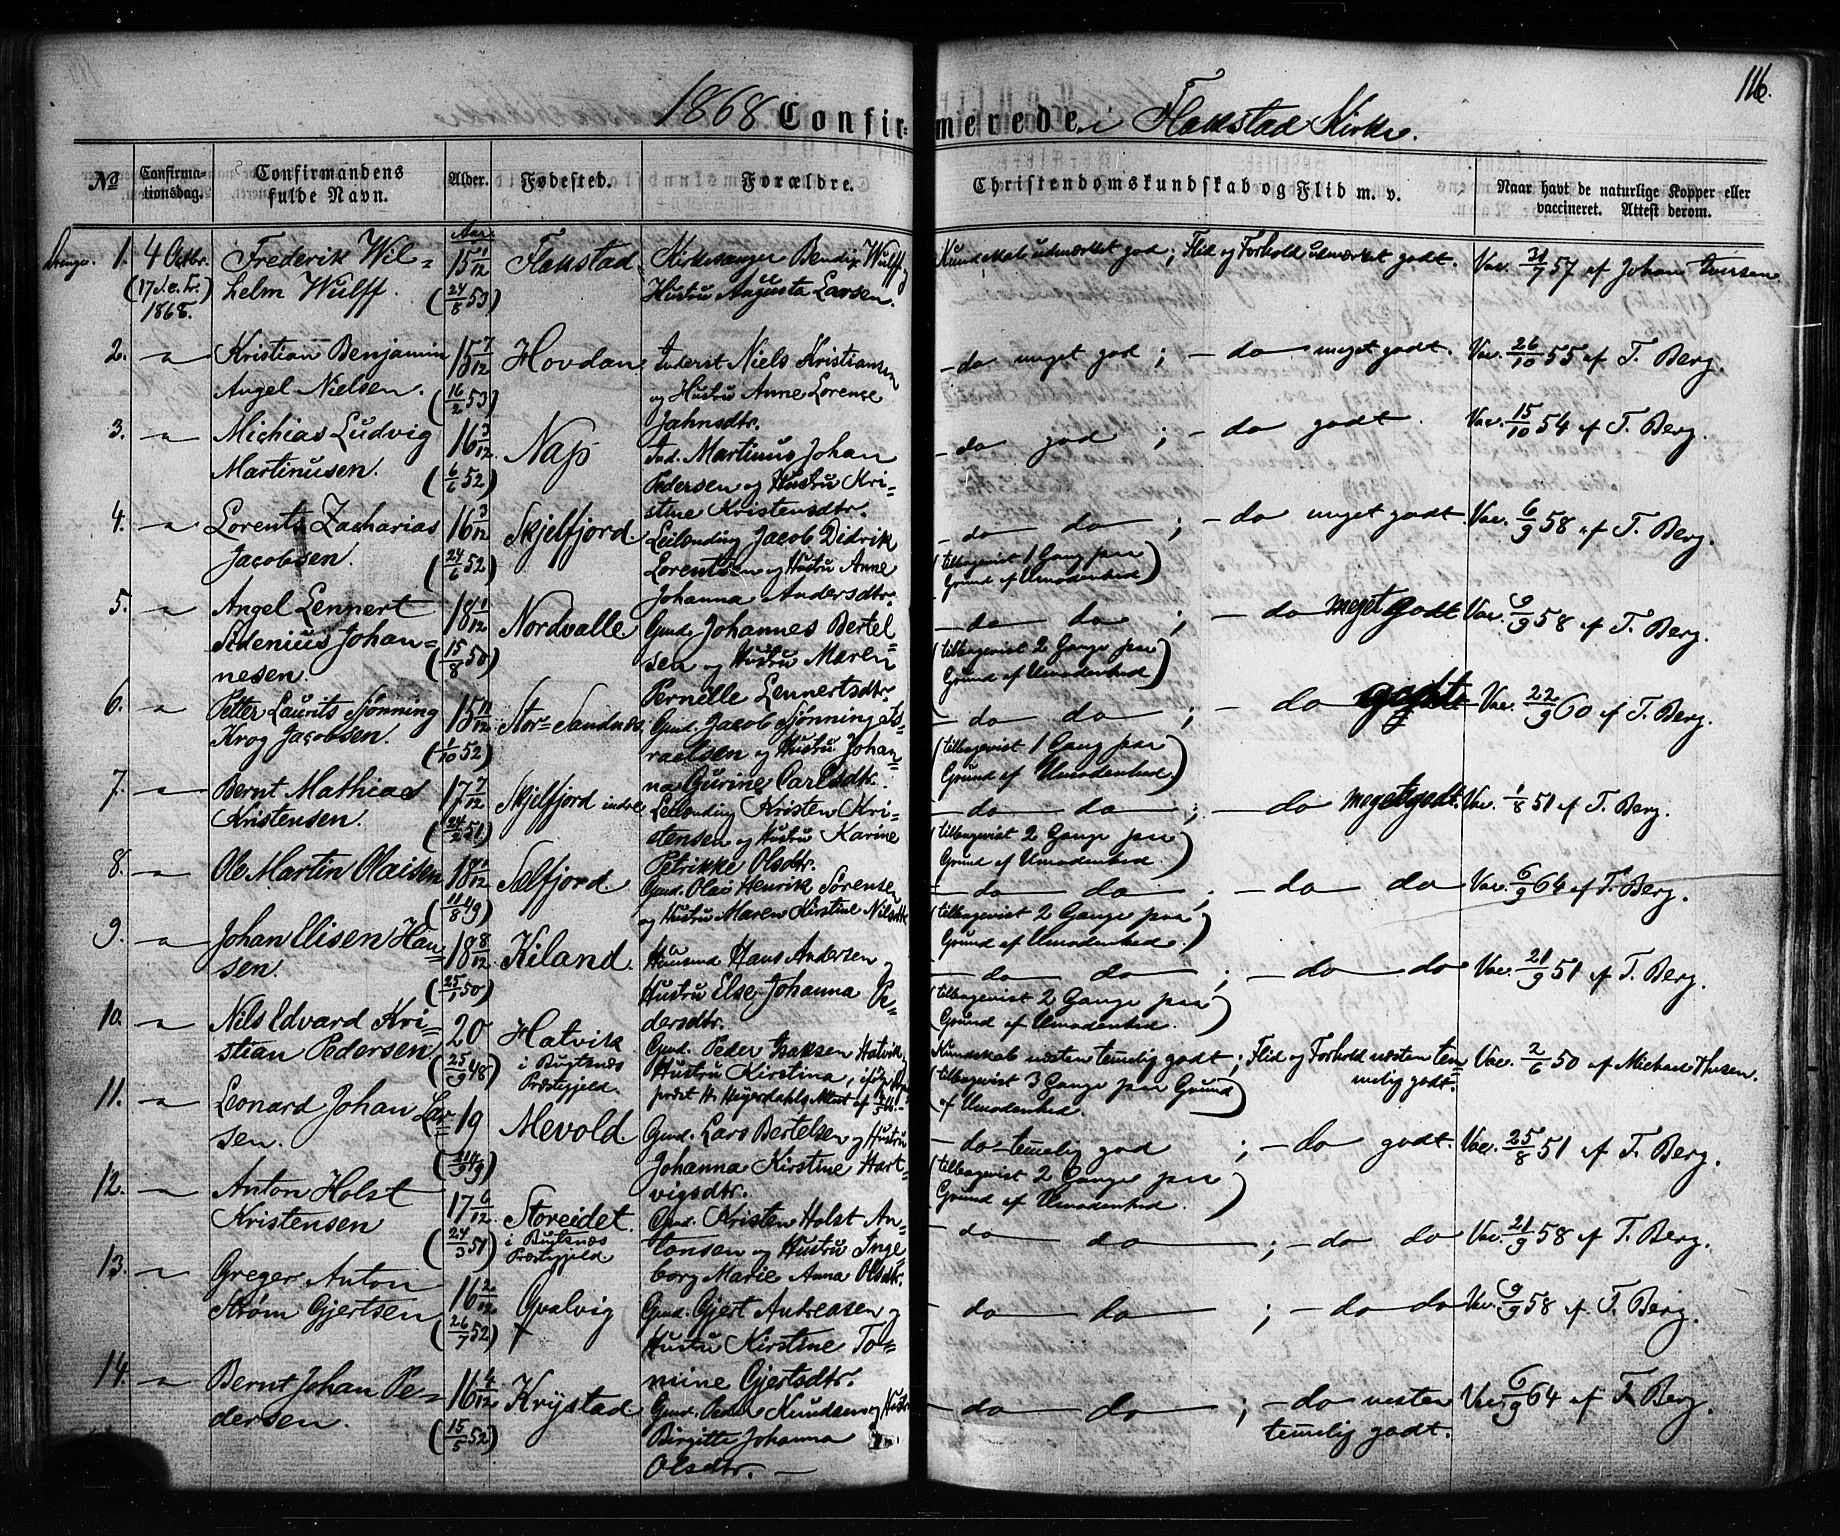 116.
1868 Confirmerede i Flakstad Kirke.
No Confirmationsdag. Confirmandens fulde Navn. Alder. Fødested. Forældre. Christendomskundskab og Flid m. v. Naar havt de naturlige Kopper eller vaccineret. Attest derom.
Drenge. 1. 4 Octbr. Frederik Wil= Aar. 15 1/12 Flakstad Kirkesanger Bendix Wulff og Kundskab udmærket god; Flid og Forhold udmærket godt. Vac. 31/7 57 af Johan Iversen
(17 S. e. Tr.) helm Wulff. (24/8 53) Hustru Augusta Larsen.
1868.
2. " Kristian Benjamin 15 7/12 Hovdan Inderst Niels Kristiansen - do meget god; - do meget godt. Vac. 26/10 55 af T. Berg.
Angel Nielsen. (16/2 53) og Hustru Anne Lorence
Jahnsdtr.
3. " Michias Ludvig 16 3/12 Nap Ind. Martinus Johan - do god; - do godt. Vac. 15/10 54 af T. Berg.
Martinusen. (6/6 52) Pedersen og Hustru Kri=
stine Kristensdtr.
4. " Lorents Zacharias 16 3/12 Skjelfjord Leilending Jacob Didrik - do do; - do meget godt. Vac. 6/9 58 af T. Berg.
Jacobsen. (24/6 52) Lorentsen og Hustru Anne (tilbagevist 1 Gang paa
Johanna Andersdtr. Grund af Umodenhed)
5. " Angel Lennert 18 1/12 Nordvalle Gmd. Johannes Bertel - do do; - do meget godt Vac. 6/9 58 af T. Berg.
Stenius Johan= (15/8 50) sen og Hustru Maren (tilbagevist 2 Gange paa
nesen. Pernille Lennertsdtr. Grund af Umodenhed)
6. " Petter Laurits Sjønning 15 11/12 Stor=Sandnes Gmd. Jacob Sjønning Is= - do do; - do godt Vac. 22/9 60 af T. Berg.
Krog Jacobsen. (1/10 52) raelsen og Hustru Johan= (tilbagevist 1 Gang paa
na Gurine Carlsdtr. Grund af Umodenhed.)
7. " Bernt Mathias 17 7/12 Skjelfjord indre Leilending Kristen Kri= - do do; - do meget godt. Vac. 1/8 51 af T. Berg.
Kristensen. (24/2 51) stensen og Hustru Karine (tilbagevist 2 Gange paa
Petrikke Olsdtr. Grund af Umodenhed.)
8. " Ole Martin Olaisen 18 11/12 Selfjord. Gmd. Olai Henrik Sørensen - do do; - do do Vac. 6/9 64 af T. Berg.
(11/8 49) og Hustru Maren Kirstine Nilsdtr (tilbagevist 2 Gange paa
Grund af Umodenhed.)
9. " Johan Elisen Han= 18 8/12 Kiland. Huusmd Hans Andersen og - do do; - do do Vac. 21/9 51 af T. Berg.
sen. (25/1 50) Hustru Else Johanna Pe= (tilbagevist 2 Gange paa
dersdtr. Grund af Umodenhed.)
10. " Nils Edvard Kri= 20 Hatvik Gmd. Peder Isaksen Hatvik, Kundskab næsten temelig godt; Flid og Forhold næsten tem= Vac. 2/6 50 af Michael Thesen.
stian Pedersen. (25/9 48) i Buxtnæs Hustru Kirstina, (tilbagevist 3 Gange paa Grund melig godt.
Præstegjeld. Heyerdahls Attest af af Umodenhed.)
11. " Leonard Johan Lar= 19 Mevold Gmd. Lars Bertelsen og Hustru - do temelig god; - do godt. Vac. 25/8 51 af T. Berg.
sen. (11/9 49) Johanna Kirstine Hart= (tilbagevist 2 Gange paa
vigsdtr. Grund af Umodenhed.)
12. " Anton Holst 17 6/12 Storeidet. Gmd. Kristen Holst An= - do do; - do do Vac. 21/9 58 af T. Berg.
Kristensen (24/3 51) i Buxtnæs tonsen og Hustru Inge=
Præstegjeld. borg Marie Anna Olsdtr.
13. " Greger Anton 16 2/12 Qvalvig Gmd. Gjert Andreasen og - do do; - do do Vac. 9/9 58 af T. Berg.
Strøm Gjertsen (26/7 52) Hustru Kirstine To=
mine Gjertsdtr.
14. " Bernt Johan Pe= 16 4/12 Krystad Gmd. Peder Knudsen og Hustru - do do; - do næsten Vac. 6/9 64 af T. Berg.
dersen. (15/5 52) Birgitte Johanna temelig godt.
Olsdtr. -